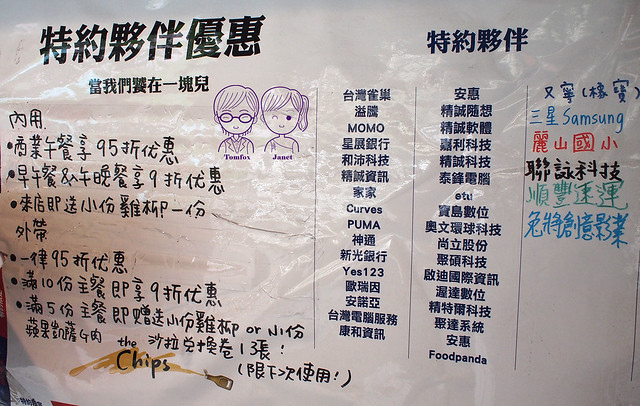 特約夥伴優惠
當我們饗在一塊兒
Tomfox
Janet
內用
•商業午餐享95折优惠
•早午餐&午晚餐享9折优惠
•來店即送小份雞柳一份
外帶
•一律95折优惠
•滿10份主餐即享9折优惠
•滿5份主餐即贈送小份雞柳 or 小份
蘋果凱薩牛肉沙拉兌換卷1張!
(限下次使用!)
the
Chips
特約夥伴
台灣雀巢
溢騰
MOMO
星展銀行
和沛科技
精誠資訊
家家
Curves
PUMA
神通
新光銀行
Yes123
歐瑞因
安諾亞
台灣電腦服務
康和資訊
安惠
精誠隨想
精誠軟體
嘉利科技
精誠科技
泰鋒電腦
etu
寶島數位
奧文環球科技
尚立股份
聚碩科技
啟迪國際資訊
渥達數位
精特爾科技
聚達系統
安惠
Foodpanda
三星Samsung
麗山國小
聯詠科技
順豐速運
兔將創意影業